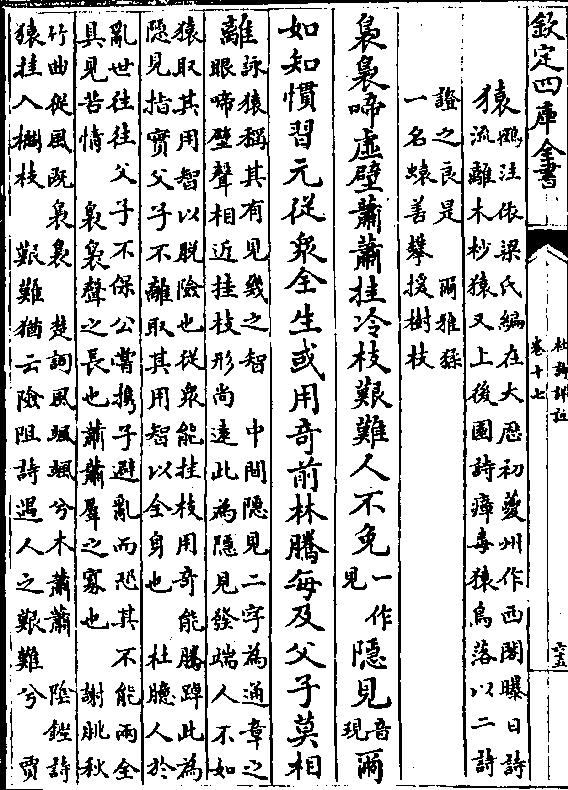 欽定四庫全書
杜詩詳註
卷十七
六五
猿鶴注依梁氏編在大厯初夔州作西閣曝日詩
流離木杪猿又上後園詩瘴毒猿鳥落以二詩
證之良是 爾雅猱
一名蝯善攀援樹枝
裊裊啼虛壁蕭蕭挂冷枝艱難人不免一作見隱見音現爾
如知慣習元從衆全生或用奇前林騰每及父子莫相
離詠猿稱其有見幾之智 中間隱見二字為通章之
眼啼壁聲相近挂枝形尚遠此為隱見發端人不如
猿取其用智以脱險也從衆能挂枝用奇能騰踔此為
隱見指實父子不離取其用智以全身也 杜臆人於
亂世往往父子不保公嘗攜子避亂而恐其不能兩全
具見苦情 裊裊聲之長也蕭蕭羣之寡也 謝朓秋
竹曲從風既裊裊 楚詞風颯颯兮木蕭蕭 陰鏗詩
猿挂入欄枝 艱難猶云險阻詩遇人之艱難兮 賈